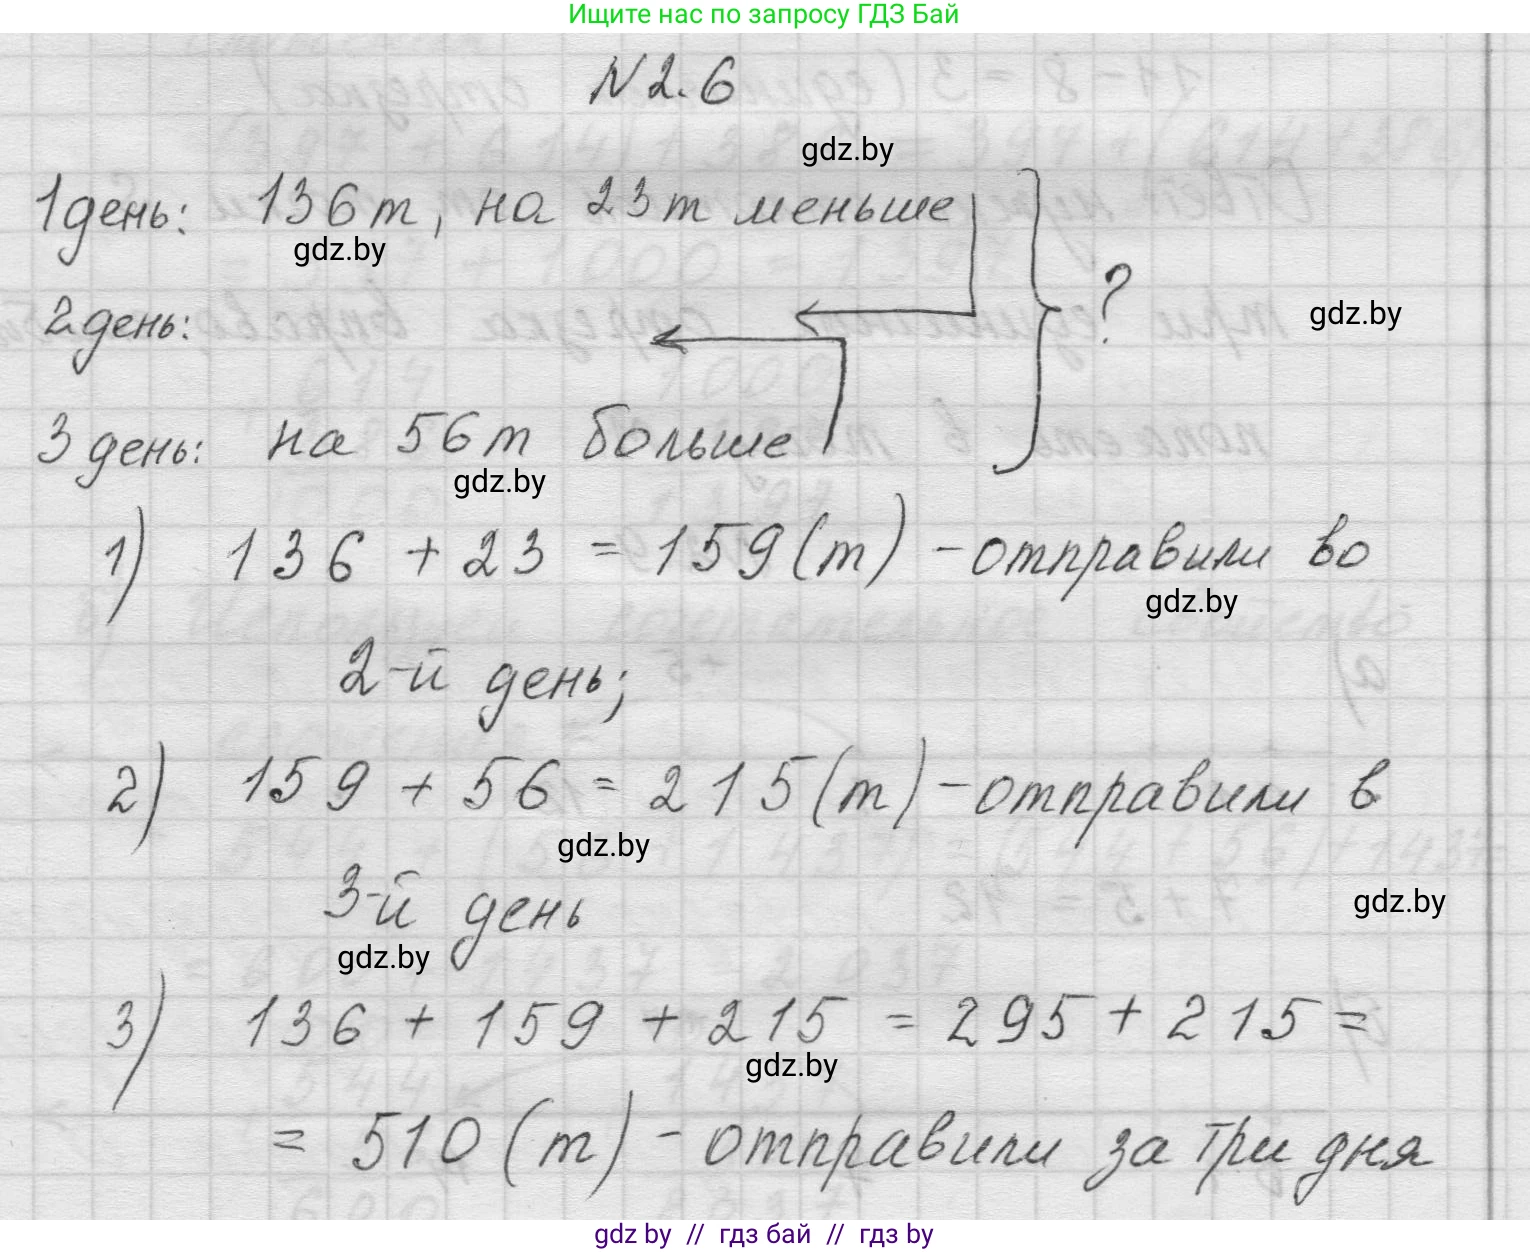 Ищите нас по запросу ГДЗ Бай
N 2.6
gdz.by
1 день: 136 т, на 23 т меньше
gdz.by
?
gdz.by
2 день:
3 день: на 56 т больше
gdz.by
1) 136 + 23 = 159 (т) - отправили во
gdz.by
2-й день;
2) 159 + 56 = 215 (т) - отправили в
gdz.by
3-й день
gdz.by
gdz.by
3) 136 + 159 + 215 = 295 + 215 =
gdz.by
= 510 (т) - отправили за три дня
gdz by // гдз бай // гдз by